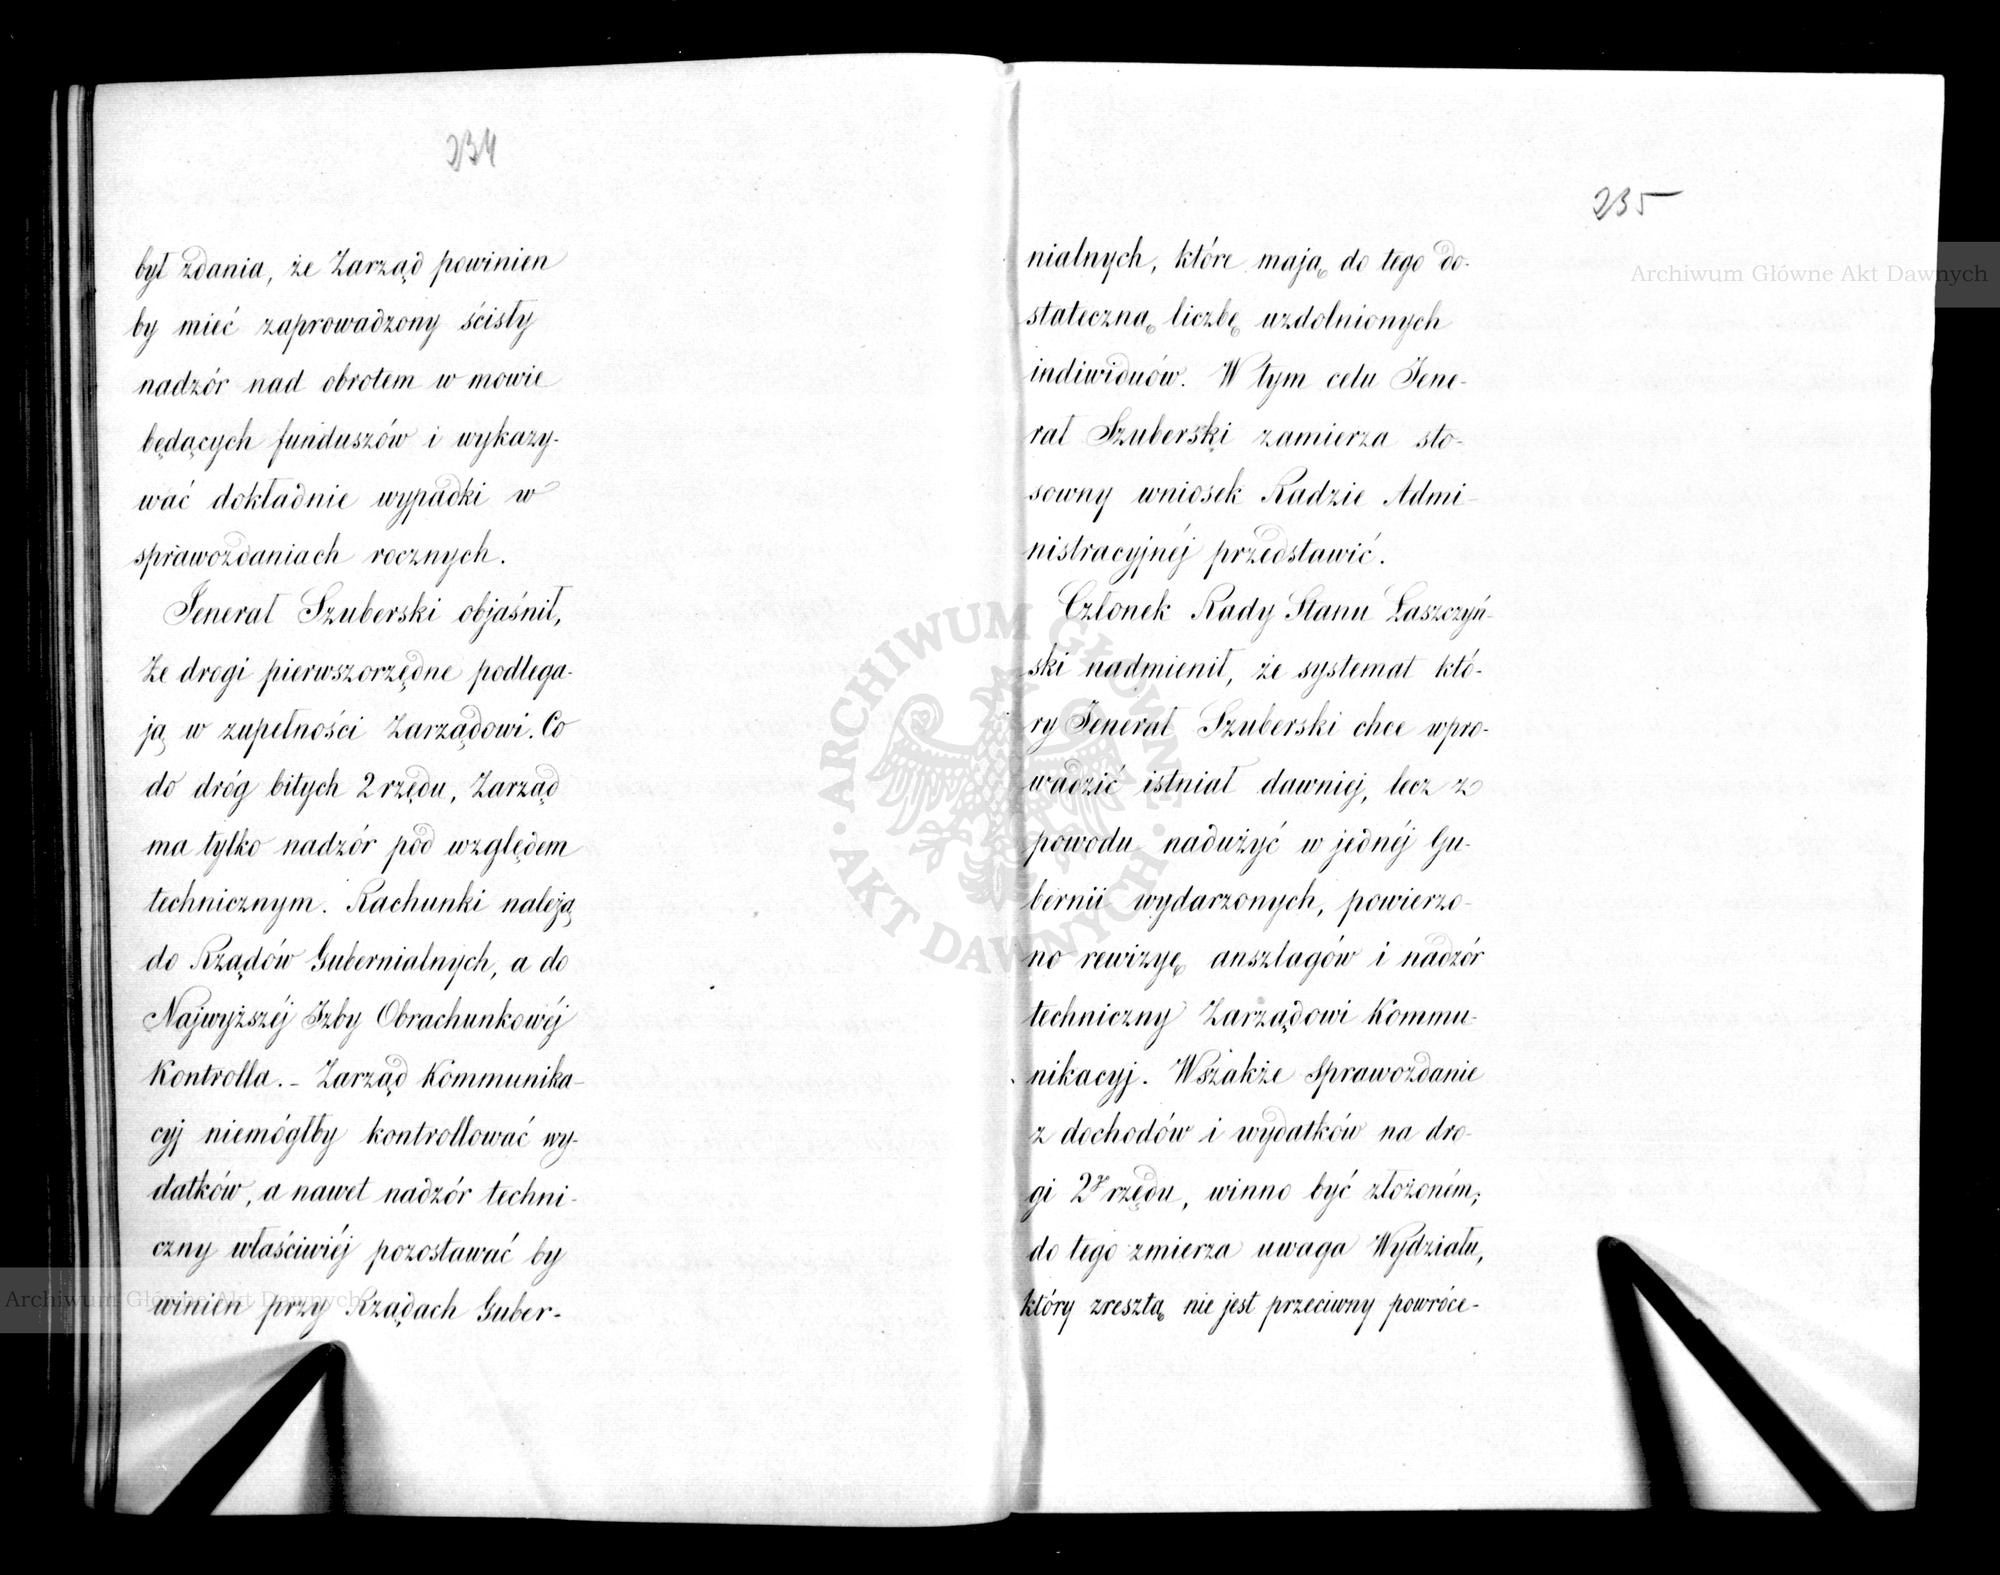 234
był zdania, że Zarząd powinien
by mieć zaprowadzony ścisły
nadzór nad obrotem w mowie
będących funduszów i wykazy-
wać dokładnie wypadki w
sprawozdaniach rocznych.
Jenerał Szuberski objaśnił,
że drogi pierwszorzędne podlega-
ją w zupełności Zarządowi. Co
do dróg bitych 2 rzędu, Zarząd
ma tylko nadzór pod względem
technicznym. Rachunki należą
do Rządów Gubernialnych, a do
Najwyższéj Izby Obrachunkowéj
Kontrolla. – Zarząd Kommunika-
cyj niemógłby kontrollować wy-
datków, a nawet nadzór techni-
czny właściwiéj pozostawać by
winien przy Rządach Guber-
235
nialnych, które mają do tego do-
stateczną liczbę uzdolnionych
indiwiduów. W tym celu Jene-
rał Szuberski zamierza sto-
sowny wniosek Radzie Admi-
nistracyjnéj przedstawić.
Członek Rady Stanu Łaszczyń-
ski nadmienił, że systemat któ-
ry Jenerał Szuberski chce wpro-
wadzić istniał dawniej, lecz z
powodu nadużyć w jednéj Gu-
bernii wydarzonych, powierzo-
no rewizyę anszlagów i nadzór
techniczny Zarządowi Kommu-
nikacyj. Wszakże Sprawozdanie
z dochodów i wydatków na dro-
gi 2go rzędu, winno być złożoném;
do tego zmierza uwaga Wydziału,
który zresztą nie jest przeciwny powróce-
Archiwum Główne Akt Dawnych
Archiwum Główne Akt Dawnych
ARCHIWUM GŁÓWNE • AKT DAWNYCH •